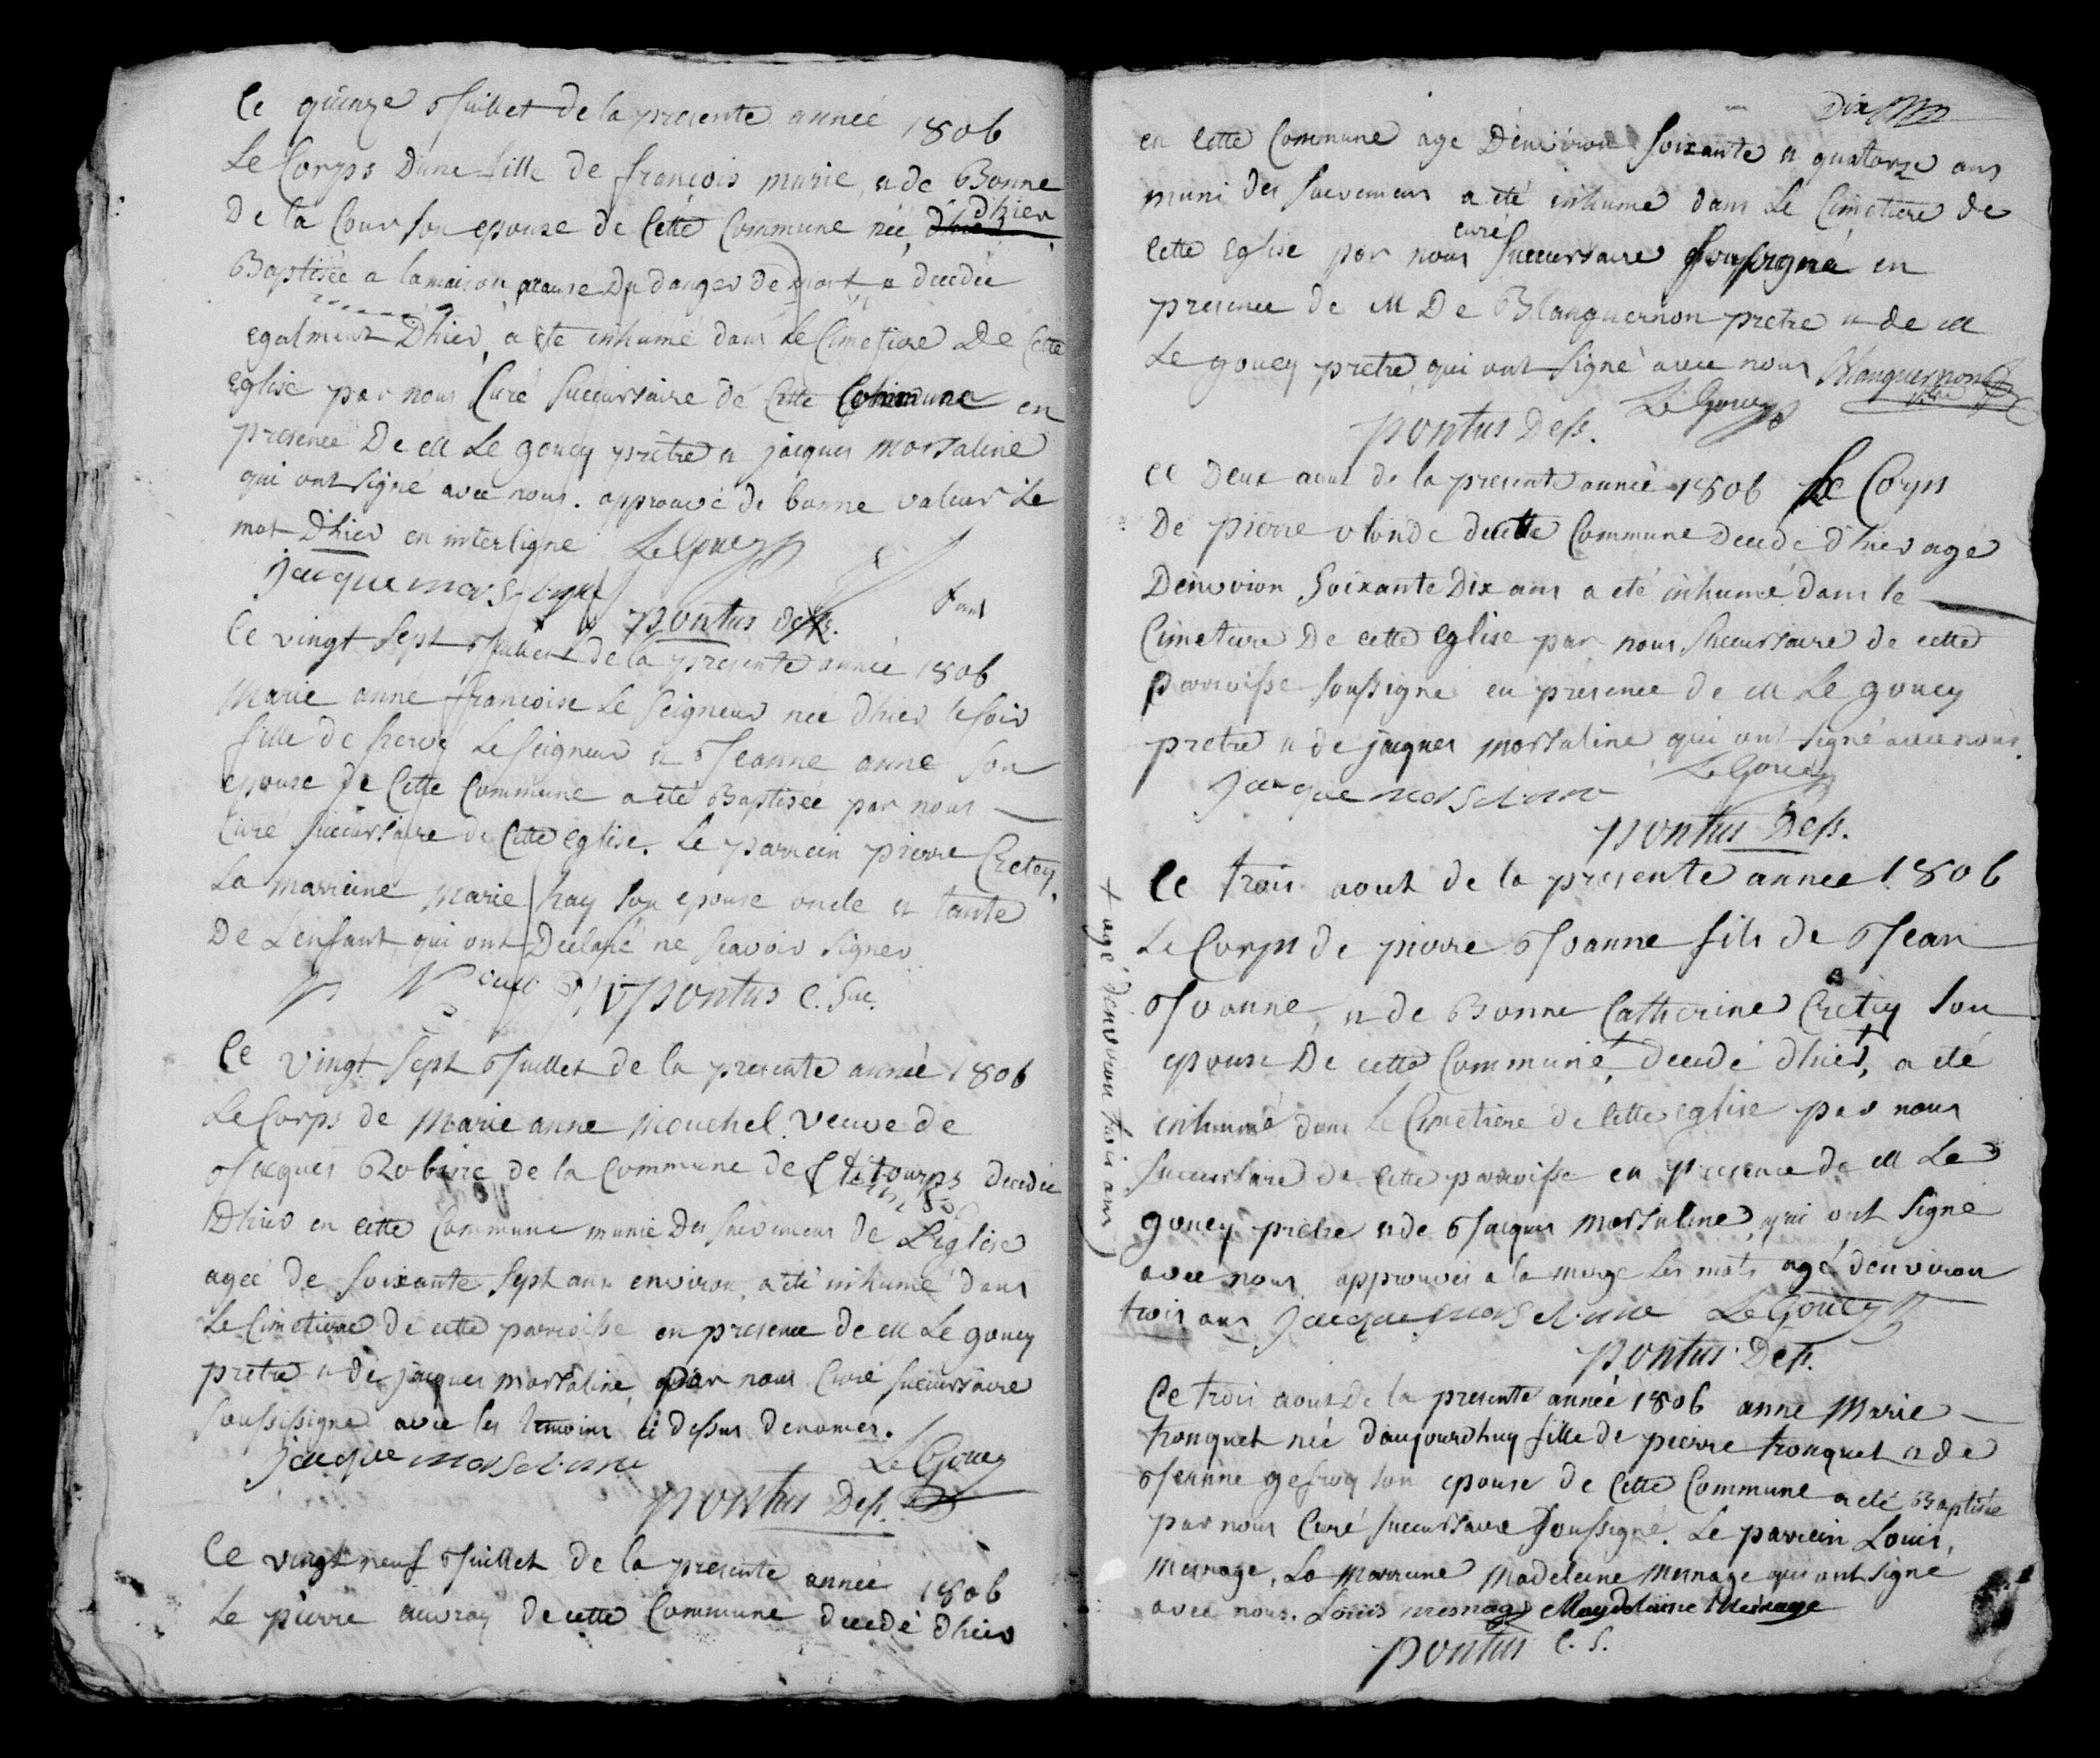 Ce quinze Juillet de la presente année 1806
Le Corps d'une fille de françois marie, et de Bonne
De la Cour son epouse de Cette Commune née, dhier
dhier
Baptisée a la maison acause Du danger de mort, a decedée
egalment Dhier, a été inhumé dans Le Cimetiere De Cette
eglise par nous Curé succursaire de Cette Commune en
presence De M Le goucy prêtre et jacques morsaline
qui ont signé avec nous. approuvé de bonne valeur Le
mot Dhier en interligne Le Goucy
jacque morsaline
pontus Dess.
Ce vingt Sept Juillet de la presente année 1806
Marie anne francoise Le Seigneur née dhier le soir
fille de herve Le Seigneur et Jeanne anne son
epouse de Cette Commune a été Baptisée par nous
Curé succursaire de Cette eglise. Le parrein pierre Cretey
La marreine marie hay son epouse oncle et tante
De L'enfant, qui ont Declaré ne scavoir signer
pontus C. Suc.
Ce vingt Sept Juillet de la presente année 1806
Le Corps de Marie anne mouchel veuve de
Jacques Robine de la Commune de Cletourps decedée
Dhier en cette Commune munie Des sacremens de L'eglise
agée de soixante sept ans environ, a été inhumé dans
Le Cimetiere de cette parroisse en presence de M Le goucy
pretre et de jacques morsaline, par nous Curé succursaire
soussissigné avec les temoins ci dessus denomés.
jacque morsaline Le Goucy
pontus Dess.
Ce vingt neuf Juillet de la presente année 1806
Le pierre auvray de cette Commune decedé dhier
Dix
en cette Commune age D'environ soixante et quatorze ans
muni des sacremens a été inhumé dans Le Cimetiere de
curé
cette Eglise par nous succursaire soussigné en
presence de M De Blanguernon pretre et de M
Le goucy pretre qui ont signé avec nous Blanguernon
Le Goucy
pontus Dess.
Ce Deux aout de la presente année 1806 Le Corps
De pierre blonde de cette Commune decedé d'hier agé
D'environ soixante Dix ans a été inhumé dans le
Cimetiere De cette eglise par nous succursaire de cette
parroisse soussigné en présence de M Le goucy
pretre et de jacques morsaline qui ont signé avec nous.
jacque morsaline Le Goucy
pontus Dess.
Ce trois aout de la presente année 1806
Le Corps de pierre Jvanne fils de Jean
Jvanne, et de Bonne Catherine Cretey son
epouse De cette Commune, decedé dhier, a été
inhumé dans Le Cimetiere de Cette eglise par nous
succursaire de Cette parroisse en presence de M Le
goucy pretre et de Jacques morsaline, qui ont signé
avec nous approuvés a la marge Les mots agé d'environ
trois ans jacque morsaline Le Goucy
pontus Dess.
+ agé d'environ trois ans
Ce trois aout de la presente année 1806 anne Marie
tronquet née d'aujourdhuy fille de pierre tronquet et de
Jeanne gefroy son epouse de Cette Commune a été Baptisée
par nous Curé succursaire soussigné. Le parrein Louis
mesnage, La marraine Madeleine mesnage qui ont signé
avec nous. Louis mesnage Magdelaine Mesnage
pontus C. S.